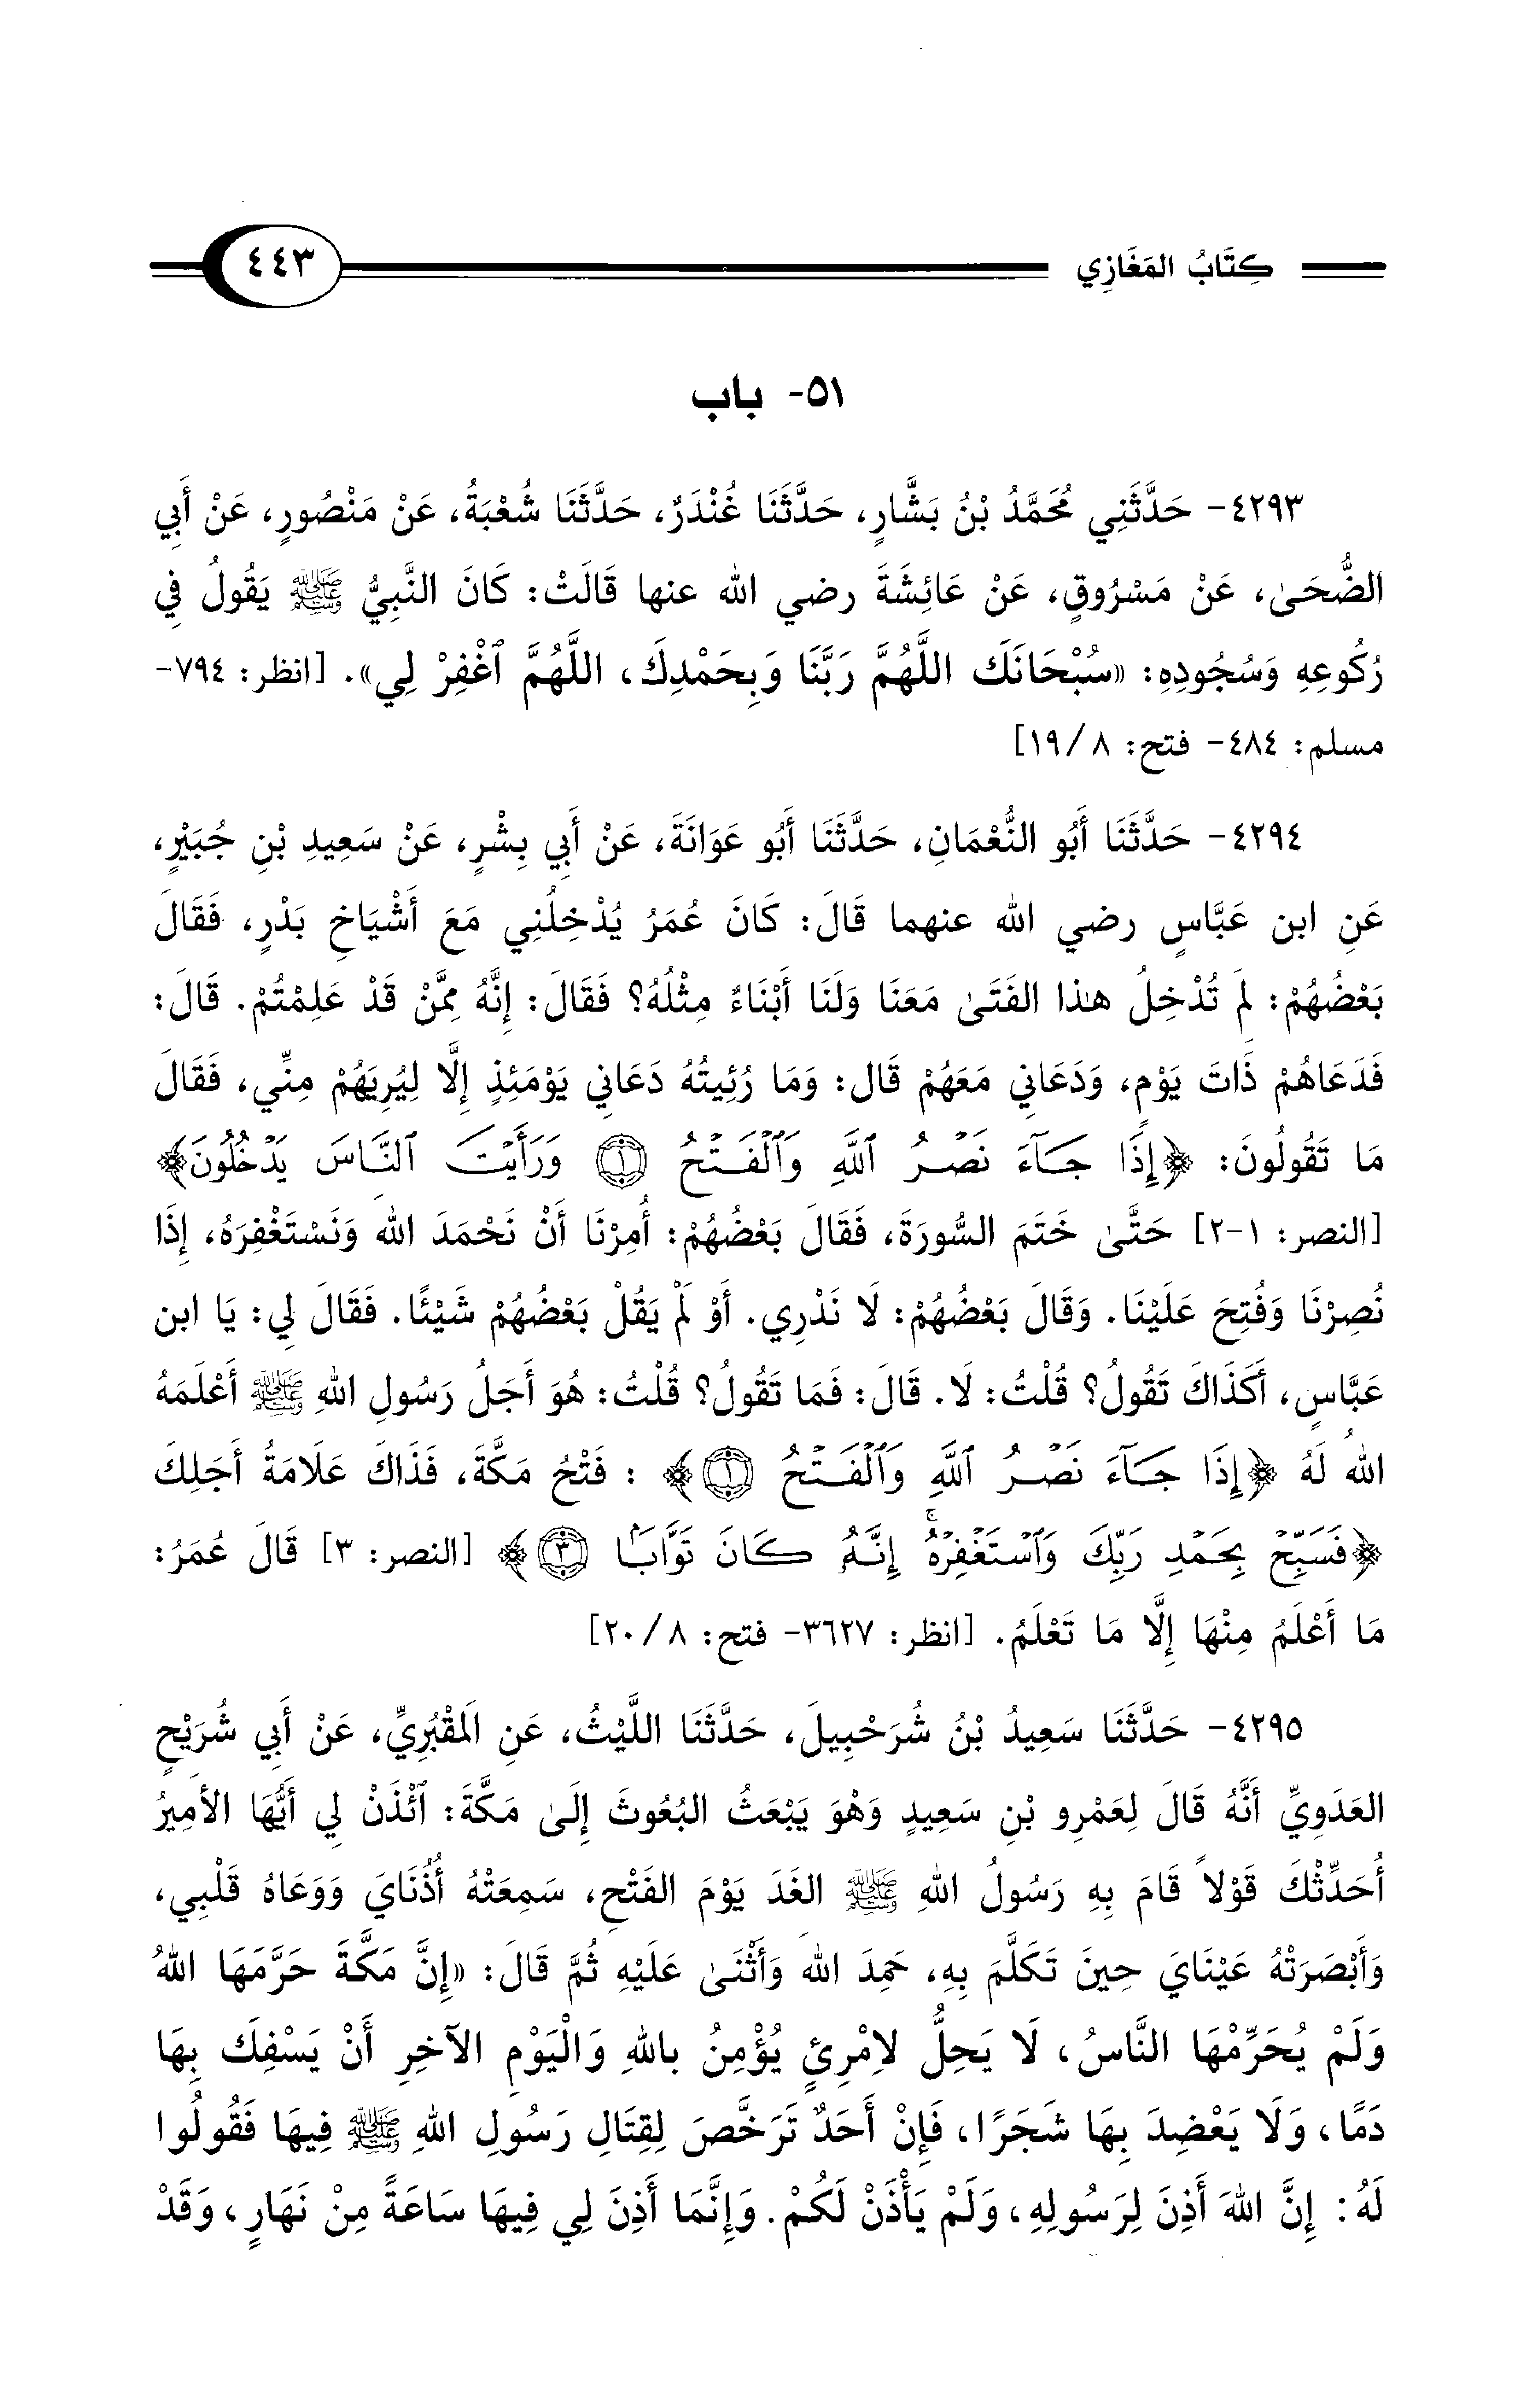 كِتَابُ المَغَازِي ٤٤٣
٥١- باب
٤٢٩٣- حَدَّثَنِي مُحَمَّدُ بْنُ بَشَّارٍ، حَدَّثَنَا غُنْدَرٌ، حَدَّثَنَا شُعْبَةُ، عَنْ مَنْصُورٍ، عَنْ أَبِي
الضُّحَىٰ، عَنْ مَسْرُوقٍ، عَنْ عَائِشَةَ رضي الله عنها قَالَتْ: كَانَ النَّبِيُّ ﷺ يَقُولُ فِي
رُكُوعِهِ وَسُجُودِهِ: «سُبْحَانَكَ اللَّهُمَّ رَبَّنَا وَبِحَمْدِكَ، اللَّهُمَّ ٱغْفِرْ لِي». [انظر: ٧٩٤-
مسلم: ٤٨٤- فتح: ٨/ ١٩]
٤٢٩٤- حَدَّثَنَا أَبُو النُّعْمَانِ، حَدَّثَنَا أَبُو عَوَانَةَ، عَنْ أَبِي بِشْرٍ، عَنْ سَعِيدِ بْنِ جُبَيْرٍ،
عَنِ ابن عَبَّاسٍ رضي الله عنهما قَالَ: كَانَ عُمَرُ يُدْخِلُنِي مَعَ أَشْيَاخِ بَدْرٍ، فَقَالَ
بَعْضُهُمْ: لِمَ تُدْخِلُ هذا الفَتَىٰ مَعَنَا وَلَنَا أَبْنَاءٌ مِثْلُهُ؟ فَقَالَ: إِنَّهُ مِمَّنْ قَدْ عَلِمْتُمْ. قَالَ:
فَدَعَاهُمْ ذَاتَ يَوْمٍ، وَدَعَانِي مَعَهُمْ قَال: وَمَا رُئِيتُهُ دَعَانِي يَوْمَئِذٍ إِلَّا لِيُرِيَهُمْ مِنِّي، فَقَالَ
مَا تَقُولُونَ: ﴿إِذَا جَآءَ نَصْرُ ٱللَّهِ وَٱلْفَتْحُ ١ وَرَأَيْتَ ٱلنَّاسَ يَدْخُلُونَ﴾
[النصر: ١-٢] حَتَّىٰ خَتَمَ السُّورَةَ، فَقَالَ بَعْضُهُمْ: أُمِرْنَا أَنْ نَحْمَدَ اللهَ وَنَسْتَغْفِرَهُ، إِذَا
نُصِرْنَا وَفُتِحَ عَلَيْنَا. وَقَالَ بَعْضُهُمْ: لَا نَدْرِي. أَوْ لَمْ يَقُلْ بَعْضُهُمْ شَيْئًا. فَقَالَ لِي: يَا ابن
عَبَّاسٍ، أَكَذَاكَ تَقُولُ؟ قُلْتُ: لَا. قَالَ: فَمَا تَقُولُ؟ قُلْتُ: هُوَ أَجَلُ رَسُولِ اللهِ ﷺ أَعْلَمَهُ
اللهُ لَهُ ﴿إِذَا جَآءَ نَصْرُ ٱللَّهِ وَٱلْفَتْحُ ١﴾ : فَتْحُ مَكَّةَ، فَذَاكَ عَلَامَةُ أَجَلِكَ
﴿فَسَبِّحْ بِحَمْدِ رَبِّكَ وَٱسْتَغْفِرْهُ ۚ إِنَّهُ كَانَ تَوَّابًۢا ٣﴾ [النصر: ٣] قَالَ عُمَرُ:
مَا أَعْلَمُ مِنْهَا إِلَّا مَا تَعْلَمُ. [انظر: ٣٦٢٧- فتح: ٨/ ٢٠]
٤٢٩٥- حَدَّثَنَا سَعِيدُ بْنُ شُرَحْبِيلَ، حَدَّثَنَا اللَّيْثُ، عَنِ المَقْبُرِيِّ، عَنْ أَبِي شُرَيْحٍ
العَدَوِيِّ أَنَّهُ قَالَ لِعَمْرِو بْنِ سَعِيدٍ وَهْوَ يَبْعَثُ البُعُوثَ إِلَىٰ مَكَّةَ: ٱئْذَنْ لِي أَيُّهَا الأَمِيرُ
أُحَدِّثْكَ قَوْلاً قَامَ بِهِ رَسُولُ اللهِ ﷺ الغَدَ يَوْمَ الفَتْحِ، سَمِعَتْهُ أُذُنَايَ وَوَعَاهُ قَلْبِي،
وَأَبْصَرَتْهُ عَيْنَايَ حِينَ تَكَلَّمَ بِهِ، حَمِدَ اللهَ وَأَثْنَىٰ عَلَيْهِ ثُمَّ قَالَ: «إِنَّ مَكَّةَ حَرَّمَهَا اللهُ
وَلَمْ يُحَرِّمْهَا النَّاسُ، لَا يَحِلُّ لاِمْرِئٍ يُؤْمِنُ باللهِ وَالْيَوْمِ الآخِرِ أَنْ يَسْفِكَ بِهَا
دَمًا، وَلَا يَعْضِدَ بِهَا شَجَرًا، فَإِنْ أَحَدٌ تَرَخَّصَ لِقِتَالِ رَسُولِ اللهِ ﷺ فِيهَا فَقُولُوا
لَهُ: إِنَّ اللهَ أَذِنَ لِرَسُولِهِ، وَلَمْ يَأْذَنْ لَكُمْ. وَإِنَّمَا أَذِنَ لِي فِيهَا سَاعَةً مِنْ نَهَارٍ، وَقَدْ